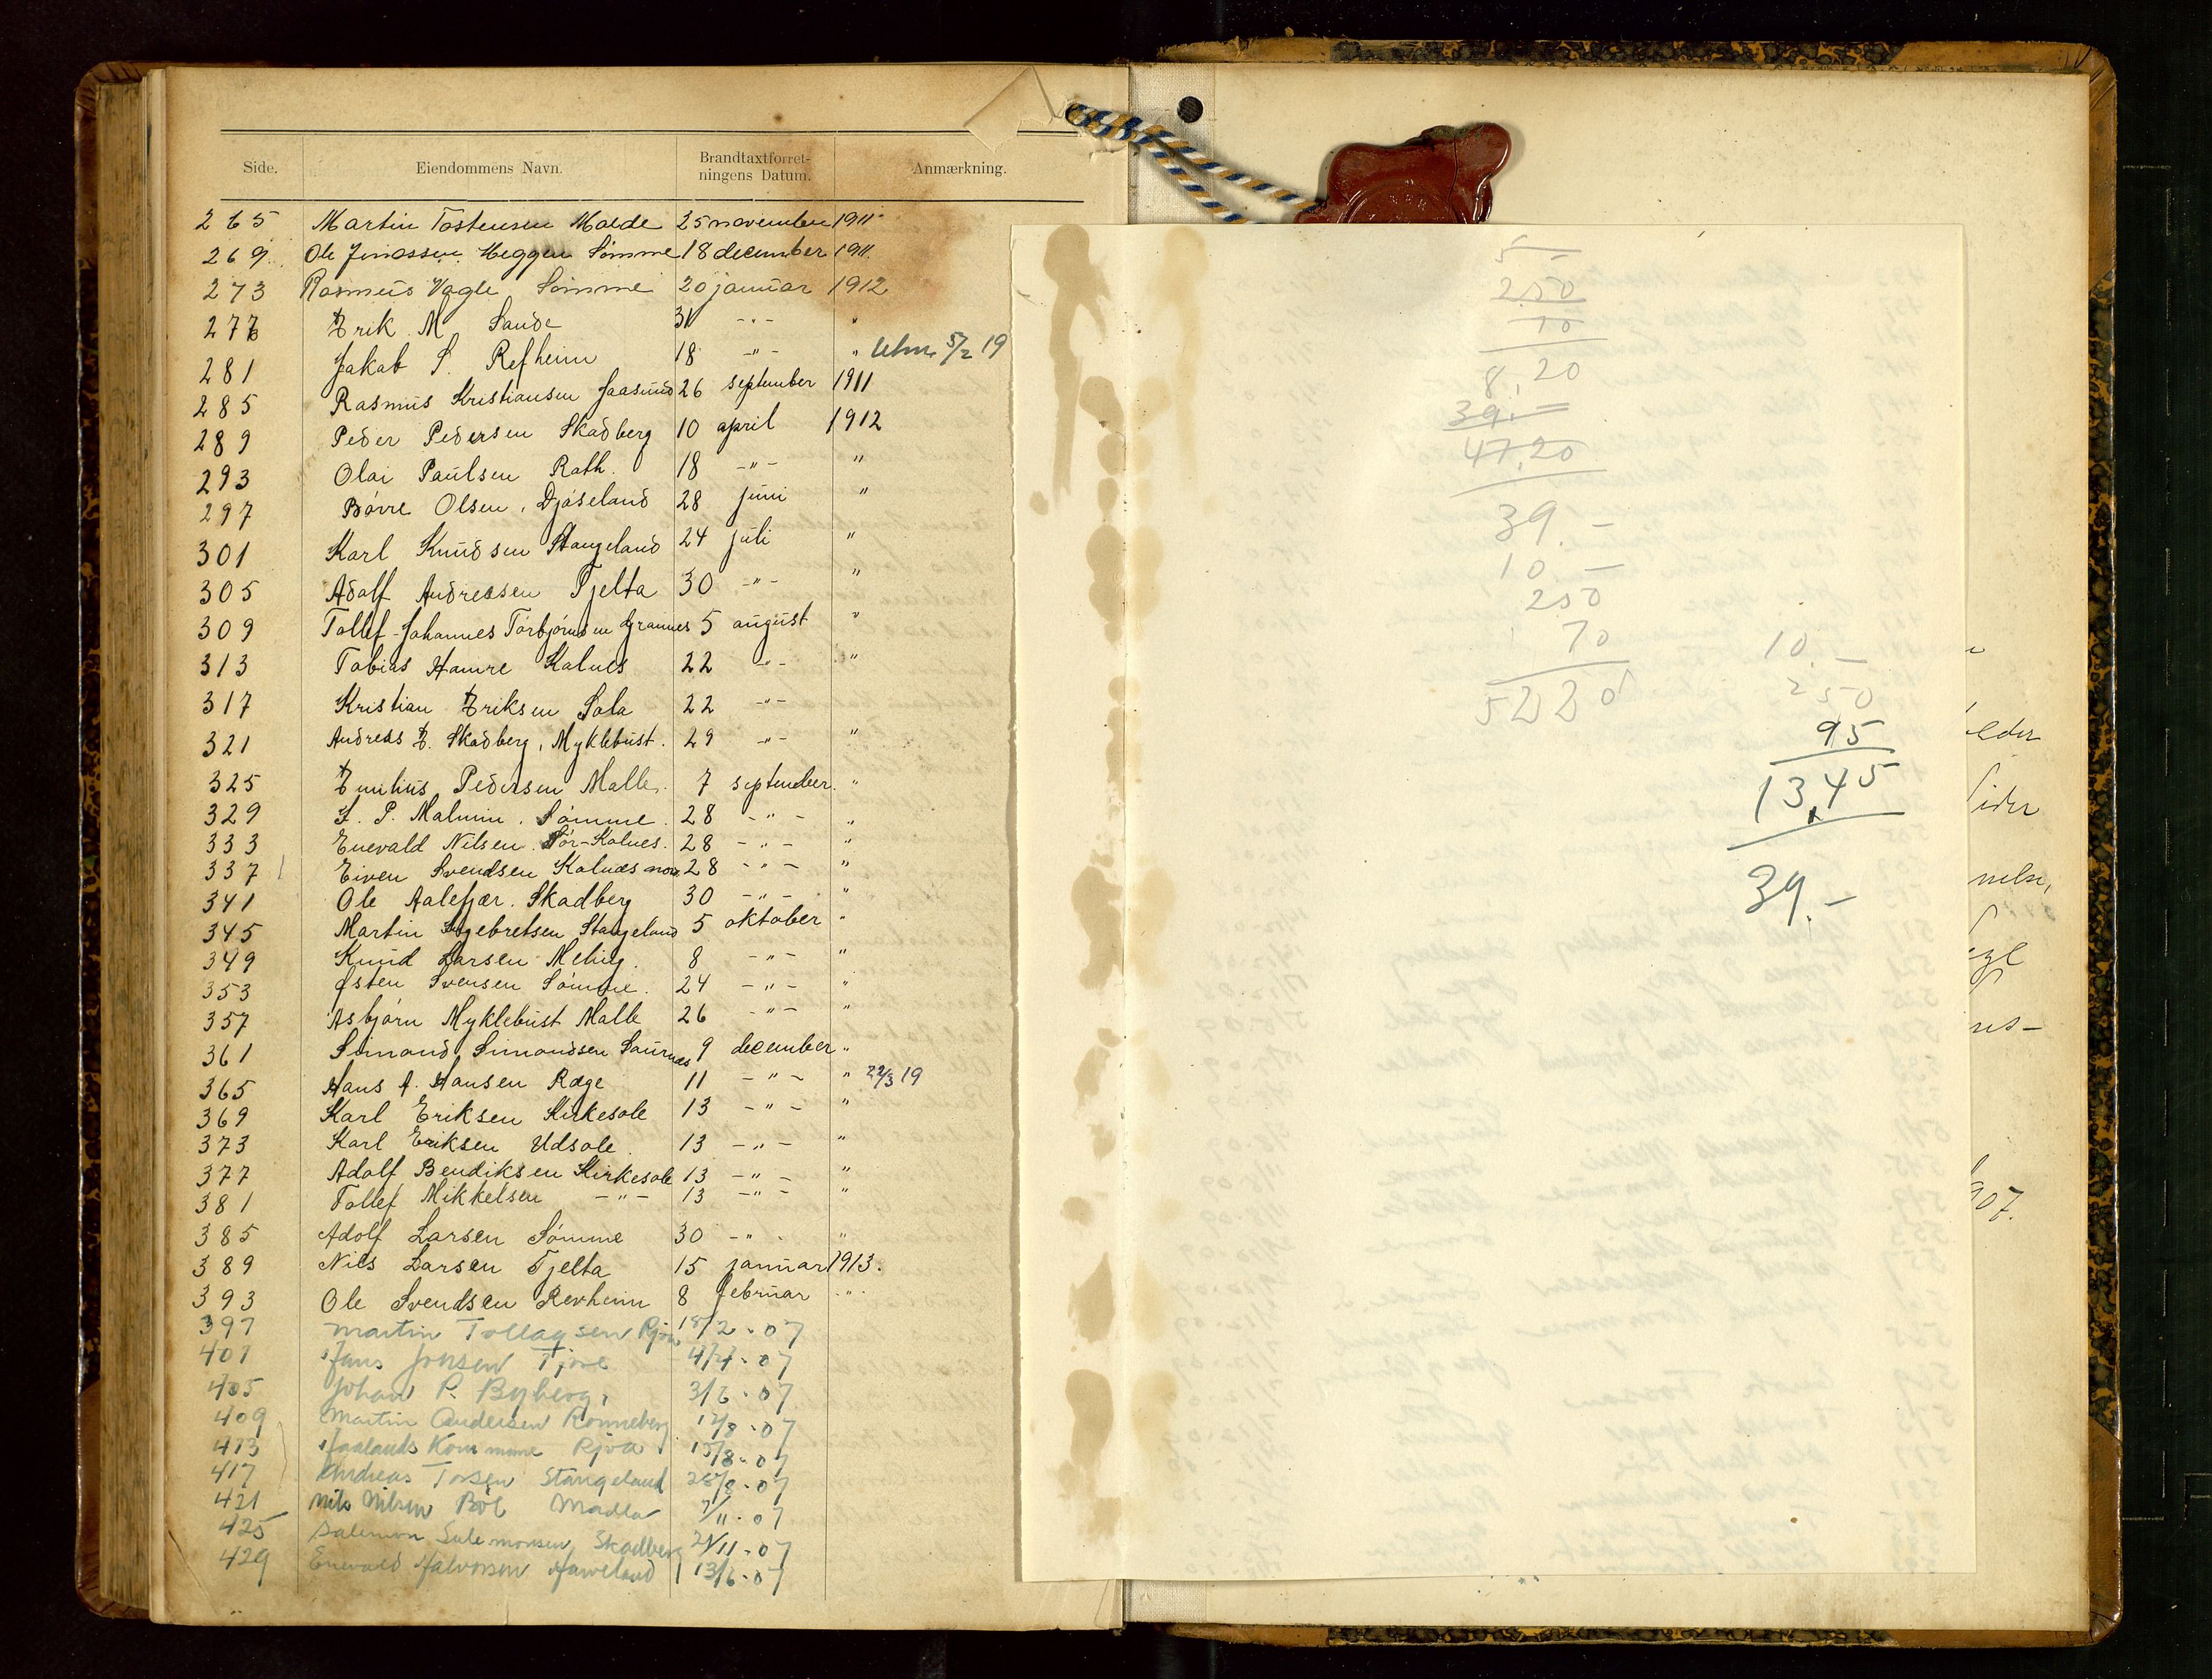 Side. Eiendommens Navn. Brandtaxtforret-ningens Datum. Anmærkning.
265 Martin Tostensen Malde 25 november 1911
269 Ole Jonassen Meggen Sømme 18 december 1911.
273 Rasmus Vagle Sømme 20 januar 1912
277 Erik M Sande 31 -"- "
281 Jakob S. Refheim 18 -"- " 5/2 19
285 Rasmus Kristiansen Jaasund 26 september 1911
289 Peder Pedersen Skadberg 10 april 1912
293 Olai Paulsen Rath. 18 -"- "
297 Børre Olsen, Djøseland 28 juni "
301 Karl Knudsen Stangeland 24 juli "
305 Adolf Andreasen Tjelta 30 -"- "
309 Tollef Johannes Torbjørnsen Grannes 5 august "
313 Tobias Hamre Kalnes 22 -"- "
317 Kristian Eriksen Sola 22 -"-
321 Andreas E. Skadberg, Myklebust. 29 -"- "
325 Emilius Pedersen Malle. 7 september. "
329 L. P. Malmin. Sømme. 28 -"- "
333 Enevald Nilsen. Sør-Kolnes. 28 -"- "
337 Eiven Svendsen Kolnes 28 -"- "
341 Ole Aalefjær. Skadberg 30 -"- "
345 Martin Ingebretsen Stangeland 5 oktober "
349 Knud Larsen Meling. 8 -"- "
353 Østen Svensen Sømme. 24 -"- "
357 Asbjørn Myklebust Malle 26 -"- "
361 Simond Simondsen Saurnes 9 december "
365 Hans A. Hansen Ræge 11 -"- " 22/3 19
369 Karl Eriksen Kirkesole 13 -"- "
373 Karl Eriksen Udsole 13 -"- "
377 Adolf Bendiksen Kirkesole 13 -"- "
381 Tollef Mikkelsen -"- 13 -"- "
385 Adolf Larsen Sømme 30 -"- "
389 Nils Larsen Tjelta 15 januar 1913.
393 Ole Svendsen Revheim 8 februar -"-
397 Martin Tollagsen 18/2-07
401 Hans Jonsen Tjore 4/4-07
405 Johan P. Byberg, 3/6-07
409 Martin Andersen Rønneberg 12/8-07
413 Haalands Kommune Rjoa 15/8-07
417 Andreas Torsen Stangeland 28/8-07
421 Nils Nilsen Böe Madla 7/11-07
425 Salemon Salemonsen Skadberg 21/11-07
429 Enevald Halvorsen Haveland 13/6-07
5 -
2.50
70
8,20
39.-
47,20
39.-
10.-
250
70
5220
10.-
250
95
13,45
39.-
elder
sider
nelse,
egl
ns-
907.